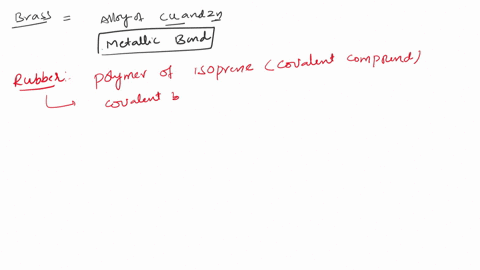 Brass = Alloy of Cu and Zn
Metallic Bond
Rubber:- polymer of isoprene (covalent compound)
covalent b